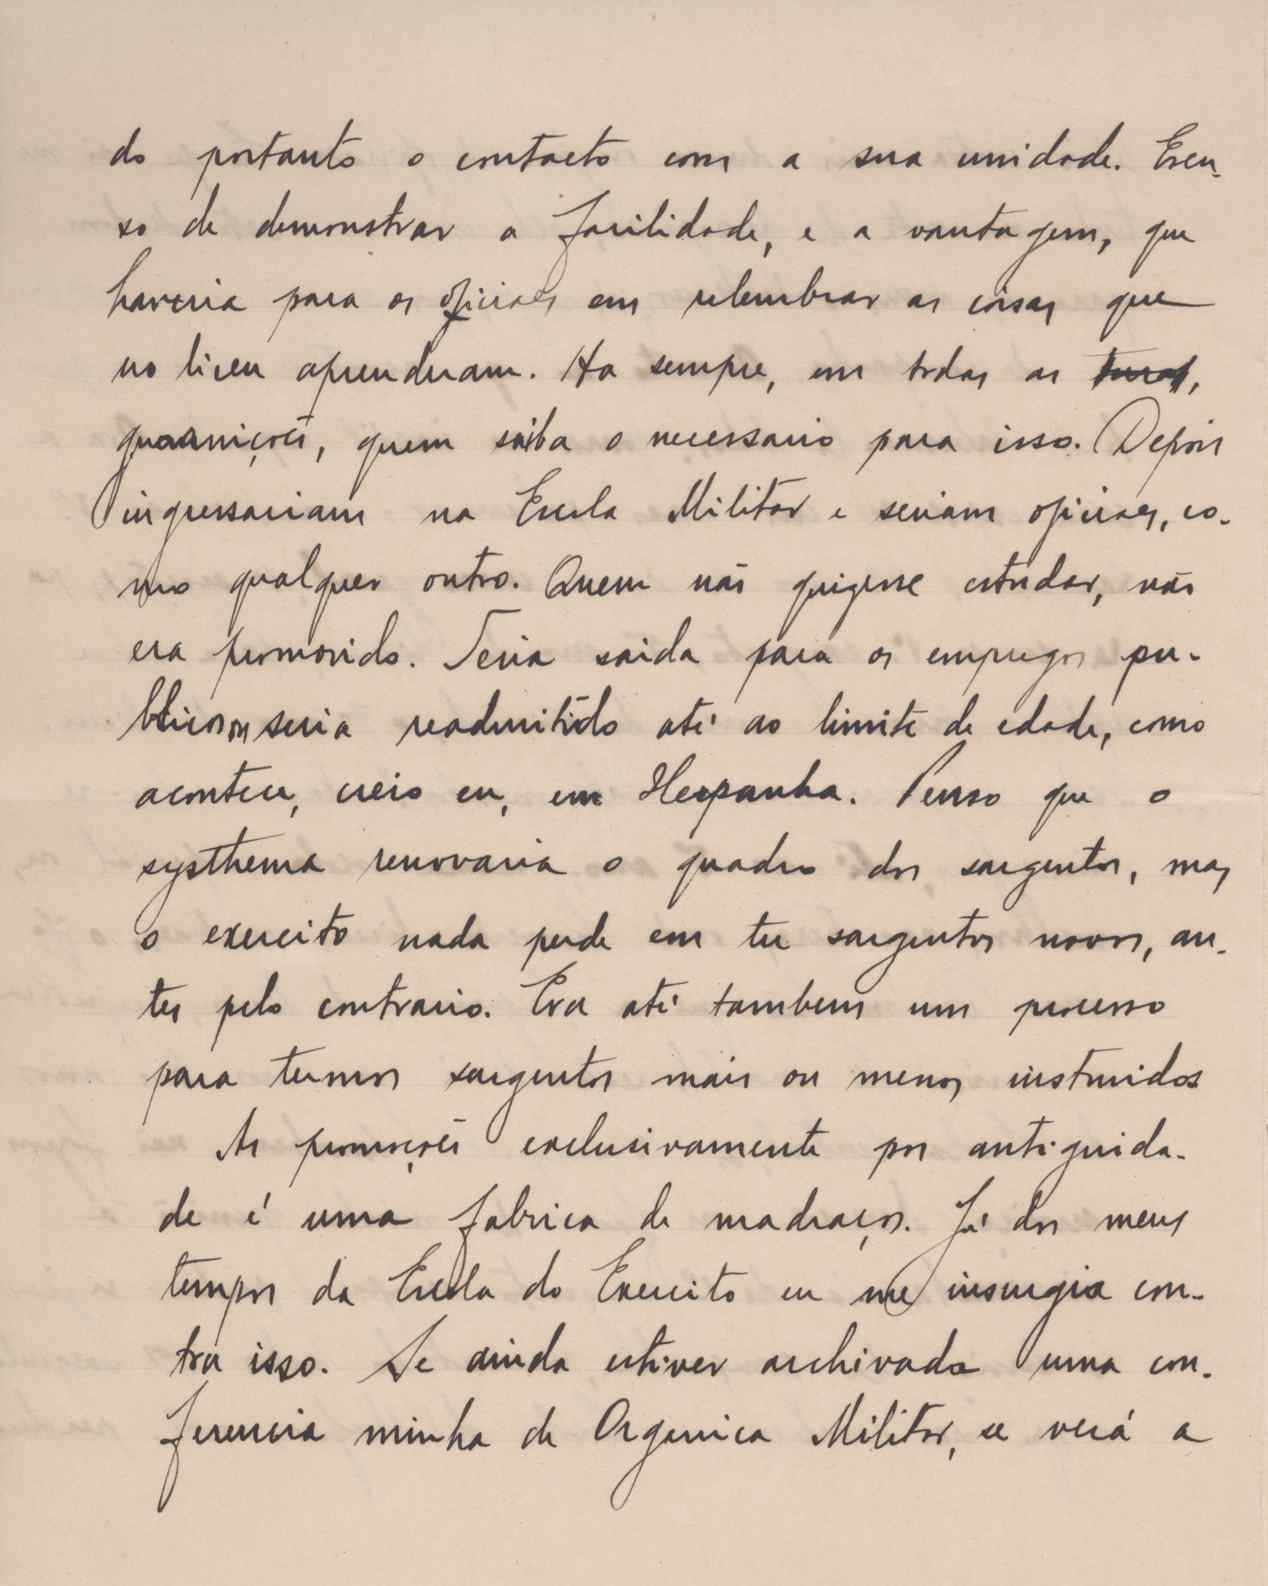 do portanto o contacto com a sua unidade. Escu-
so de demonstrar a facilidade, e a vantagem, que
haveria para os oficiaes em relembrar as coisas que
no liceu aprenderam. Ha sempre, em todas as
guarnições, quem saiba o necessario para isso. Depois
ingressariam na Escola Militar e seriam oficiaes, co-
mo qualquer outro. Quem não quizesse estudar, não
era promovido. Teria saida para os empregos pu-
blicos ou seria readmitido até ao limite de edade, como
acontece, creio eu, em Hespanha. Penso que o
systhema renovaria o quadro dos sargentos, mas
o exercito nada perde em ter sargentos novos, an-
tes pelo contrario. Era até tambem um processo
para termos sargentos mais ou menos instruidos
As promoções exclusivamente por antiguida-
de é uma fabrica de madraços. Já dos meus
tempos da Escola do Exercito eu me insurgia con-
tra isso. Se ainda estiver archivada uma con-
ferencia minha de Organica Militar, se verá a